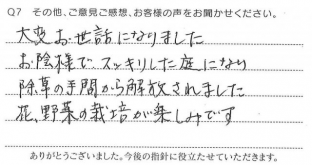 Q7 その他、ご意見ご感想、お客様の声をお聞かせください。
大変お世話になりました
お陰様でスッキリした庭になり
除草の手間から解放されました
花、野菜の栽培が楽しみです
ありがとうございました。今後の指針に役立たせていただきます。